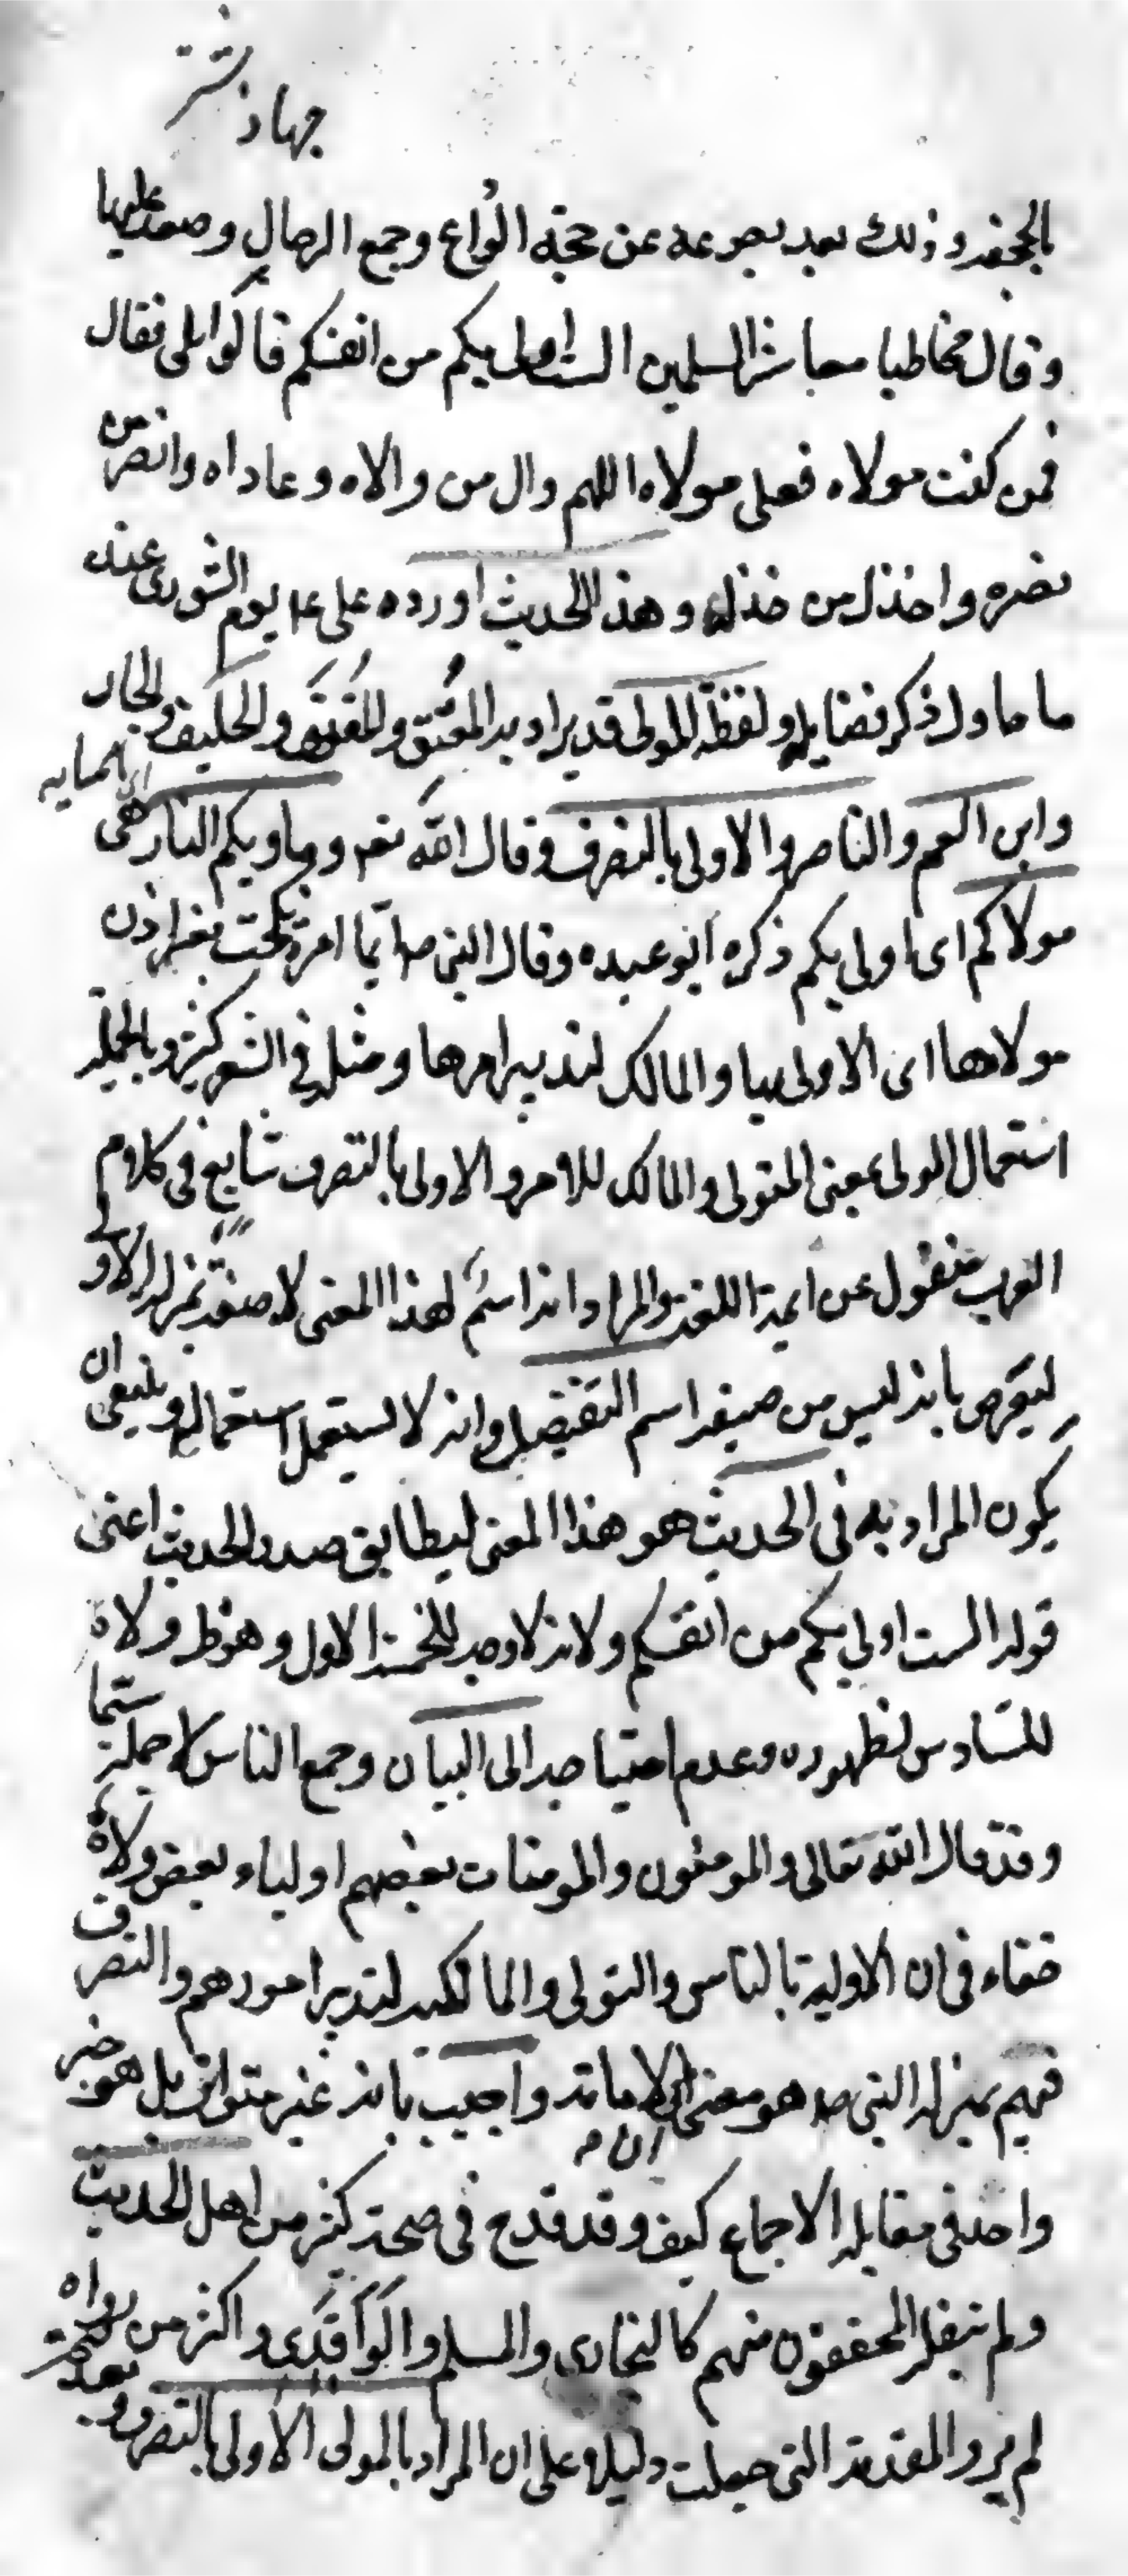 جهاد نشتر
بالجحفه وذلك بعد رجوعه عن حجة الوداع وجمع الرحال وصعد عليها
وقال مخاطبا معاشر المسلمين الست اولى بكم من انفسكم قالوا بلى فقال
فمن كنت مولاه فعلى مولاه اللهم وال من والاه وعاداه وانصر من
نصره واخذل من خذله وهذا الحديث اورده على ع م يوم الشورى عند
ما حاول ذكر فضايله ولفظة المولى قد يراد به المعتِق والمعتَق والحليف والجار
وابن العم والناصر والاولى بالتصرف وقال الله تعم وماويكم النار هى
مولاكم اى اولى بكم ذكره ابو عبيده وقال النبى صم ايما امرة نكحت بغير اذن
مولاها اى الاولى بها والمالك لتدبير امرها ومثله فى الشعر كثير وبالجملة
استعمال المولى بمعنى المتولى والمالك للامر والاولى بالتصرف شايع فى كلام
العرب منقول عن ايمة اللغة والمراد انه اسم لهذا المعنى لا صفة بمنزلة الاولى
ليعترض بانه ليس من صيغة اسم التفضيل وانه لا يستعمل استعماله وينبغى ان
يكون المراد به فى الحديث هو هذا المعنى ليطابق صدر الحديث اعنى
قوله الست اولى بكم من انفسكم ولانه لا وجه للخمسة الاول وهو ظ ولا
للسادس لظهوره وعدم احتياجه الى البيان وجمع الناس لاجله سيما
وقد قال الله تعالى والمومنون والمومنات بعضهم اولياء بعض ولا
خفاء فى ان الاولية بالناس والتولى والمالكية لتدبير امورهم والتصرف
فيهم بمنزلة النبى صم هو معنى الامامة واجيب بانه غير متواتر بل هو خبر
واحد فى مقابلة الاجماع كيف وقد قدح فى صحته كثير من اهل الحديث
ولم ينقله المحققون منهم كالبخارى والمسلم والواقدى واكثر من رواه
لم يرو المقدمة التى جعلت دليلا على ان المراد بالمولى الاولى بالتصرف وبعد